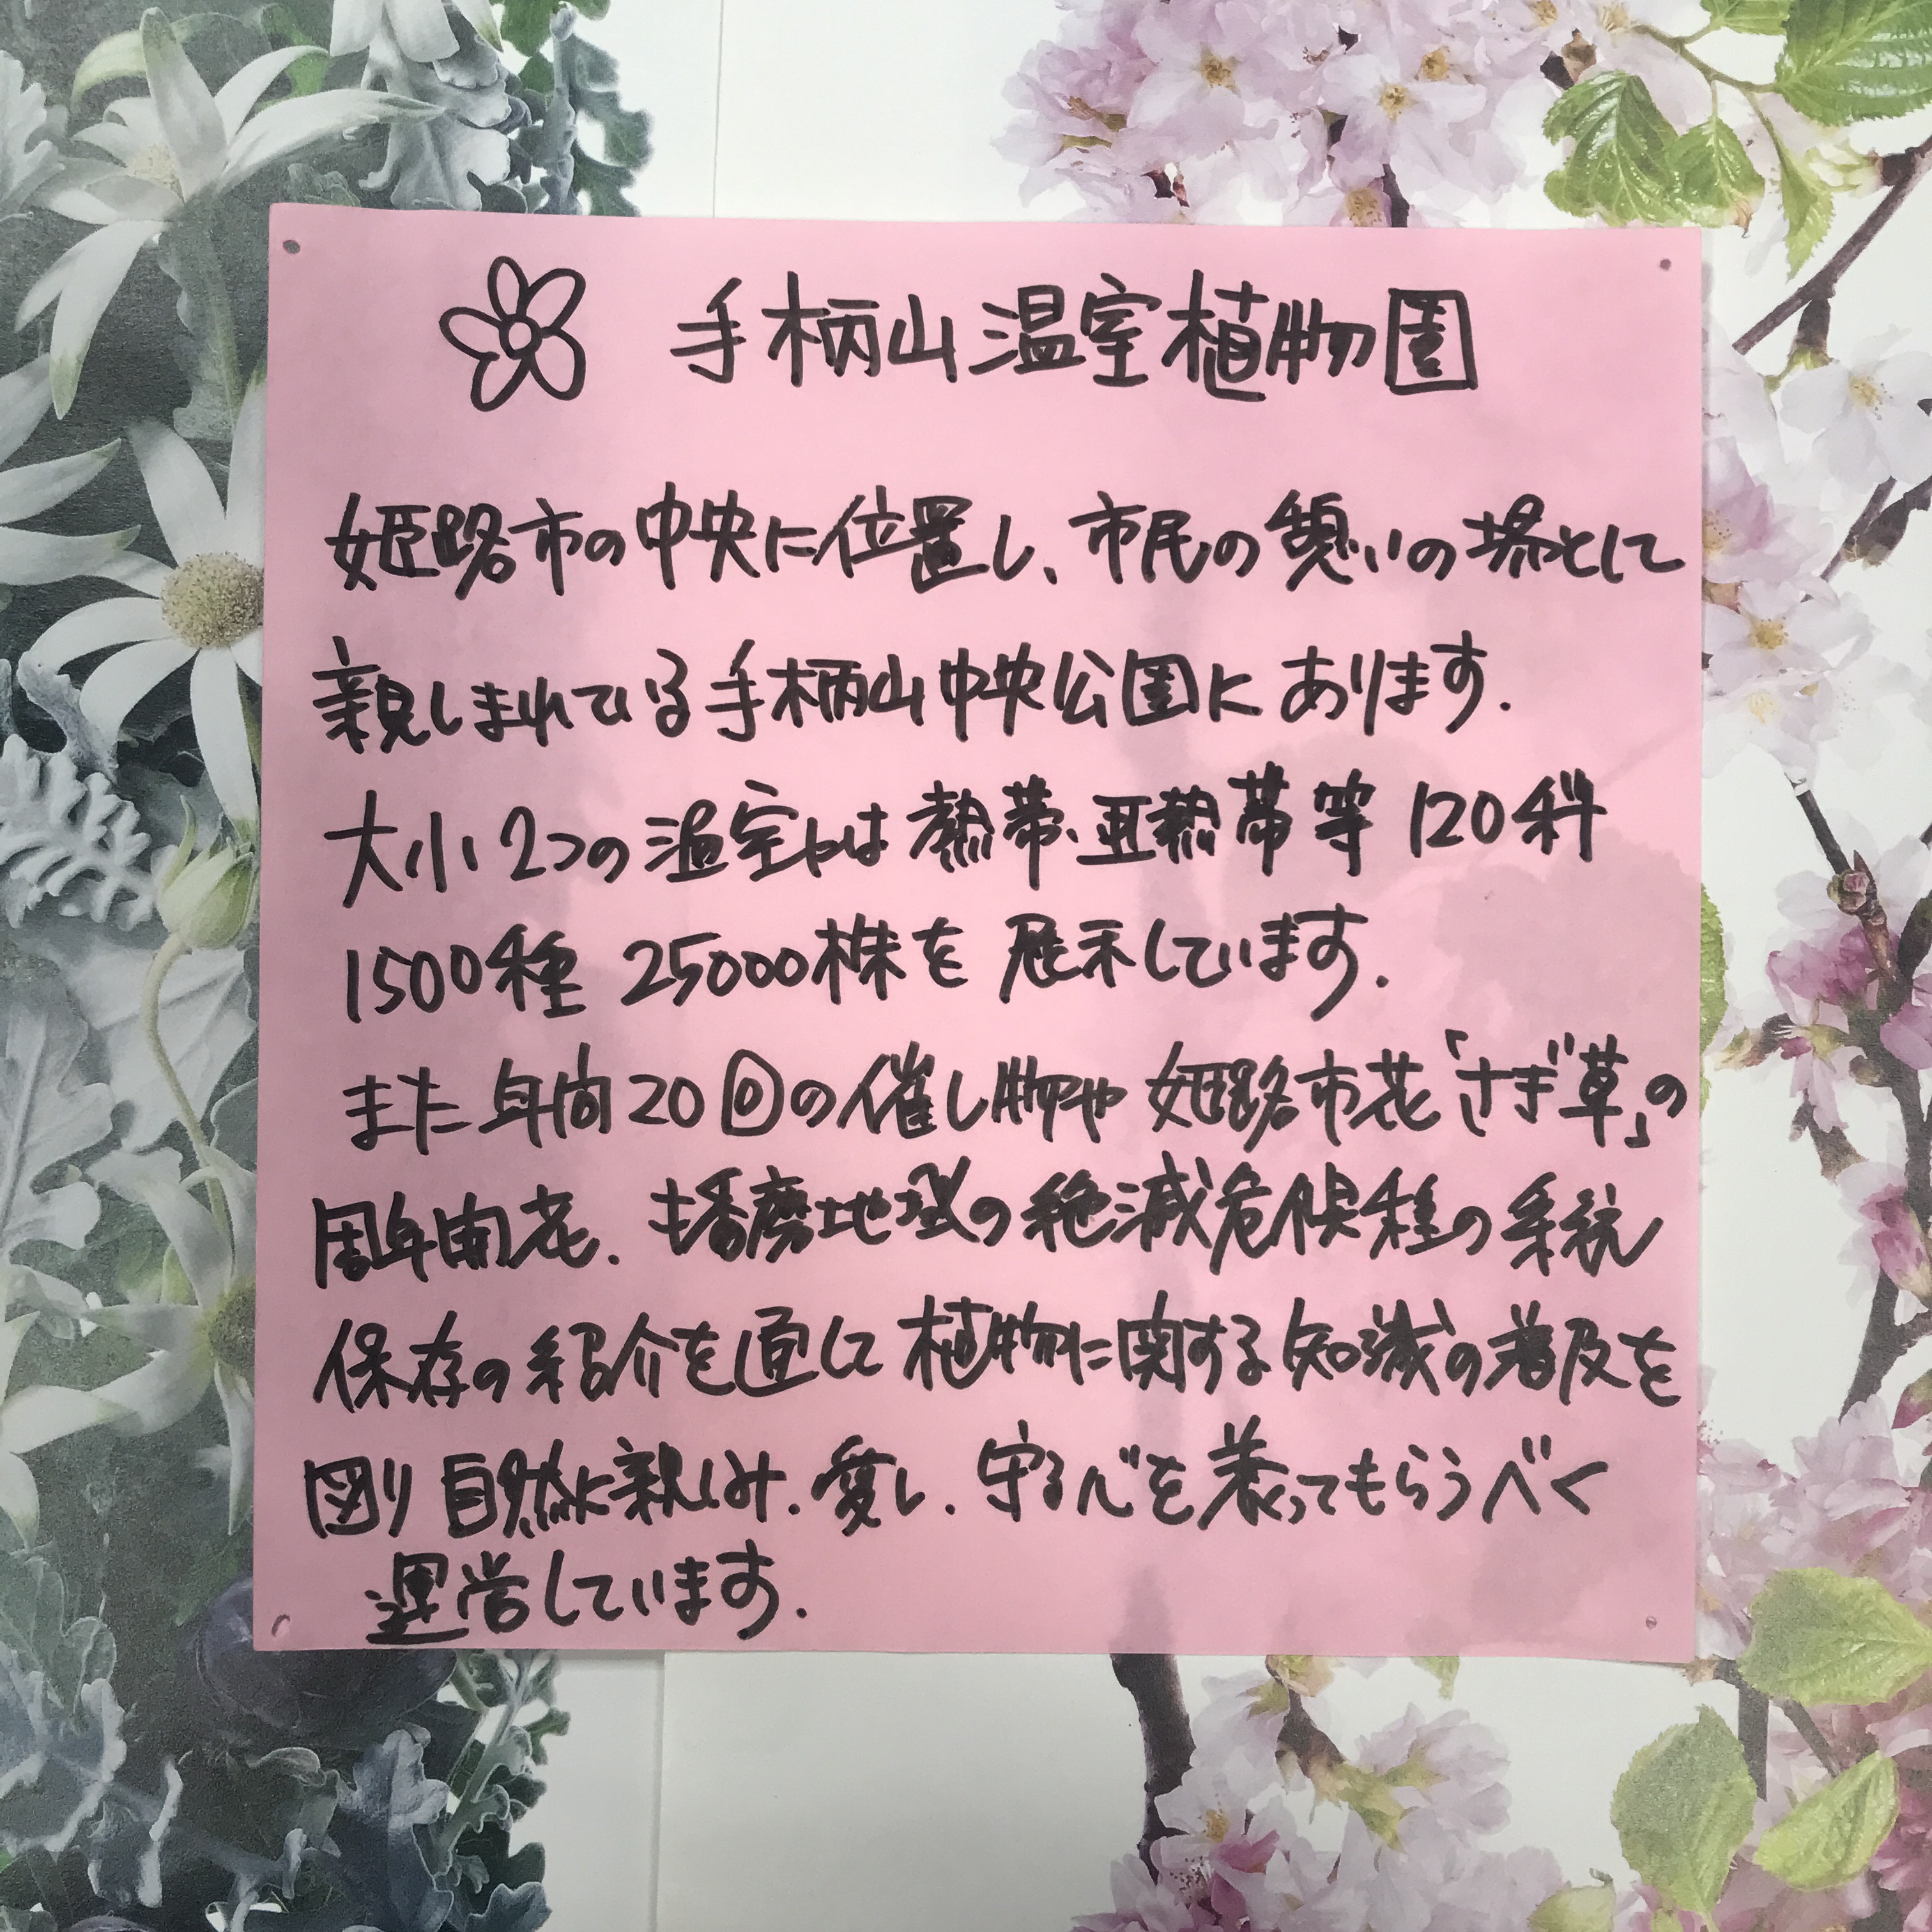 手柄山温室植物園
姫路市の中央に位置し、市民の憩いの場として
親しまれている手柄山中央公園にあります.
大小2つの温室には熱帯、亜熱帯等 120科
1500種 25000株を 展示しています.
また 年間20回の催し物や 姫路市花「さぎ草」の
周年開花、播磨地域の絶滅危惧種の系統
保存の紹介を通して 植物に関する知識の普及を
図り 自然に親しみ、愛し、守る心を養ってもらうべく
運営しています.